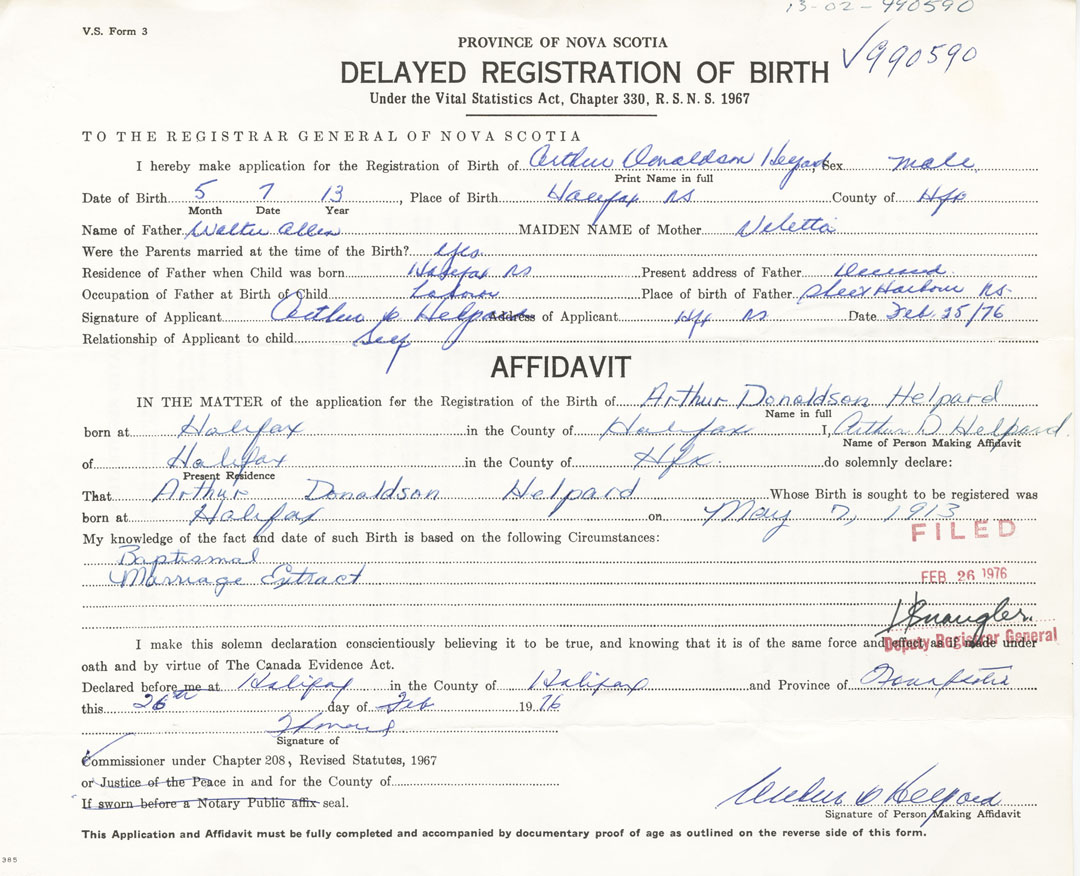 13-02-990590
V.S. Form 3
PROVINCE OF NOVA SCOTIA
√990590
DELAYED REGISTRATION OF BIRTH
Under the Vital Statistics Act, Chapter 330, R.S.N.S. 1967
TO THE REGISTRAR GENERAL OF NOVA SCOTIA
I hereby make application for the Registration of Birth of Arthur Donaldson Helpard, Sex male
Print Name in full
Date of Birth 5 7 13, Place of Birth Halifax NS County of Hfx
Month Date Year
Name of Father Walter Allen MAIDEN NAME of Mother Veletta
Were the Parents married at the time of the Birth? Yes.
Residence of Father when Child was born Halifax NS Present address of Father Deceased
Occupation of Father at Birth of Child Labour Place of birth of Father Sheet Harbour NS-
Signature of Applicant Arthur D Helpard Address of Applicant Hfx NS Date Feb. 25/76
Relationship of Applicant to child Self
AFFIDAVIT
IN THE MATTER of the application for the Registration of the Birth of Arthur Donaldson Helpard
Name in full
born at Halifax in the County of Halifax I, Arthur D. Helpard
Name of Person Making Affidavit
of Halifax in the County of Hfx. do solemnly declare:
Present Residence
That Arthur Donaldson Helpard Whose Birth is sought to be registered was
born at Halifax on May 7, 1913
My knowledge of the fact and date of such Birth is based on the following Circumstances:
FILED
Baptismal
Marriage Extract
FEB 26 1976
I make this solemn declaration conscientiously believing it to be true, and knowing that it is of the same force and effect as if made under
Deputy Registrar General
oath and by virtue of The Canada Evidence Act.
Declared before me at Halifax in the County of Halifax and Province of Nova Scotia
this 26th day of Feb 1976
Signature of
Commissioner under Chapter 208, Revised Statutes, 1967
or Justice of the Peace in and for the County of
If sworn before a Notary Public affix seal.
Arthur D Helpard
Signature of Person Making Affidavit
This Application and Affidavit must be fully completed and accompanied by documentary proof of age as outlined on the reverse side of this form.
385